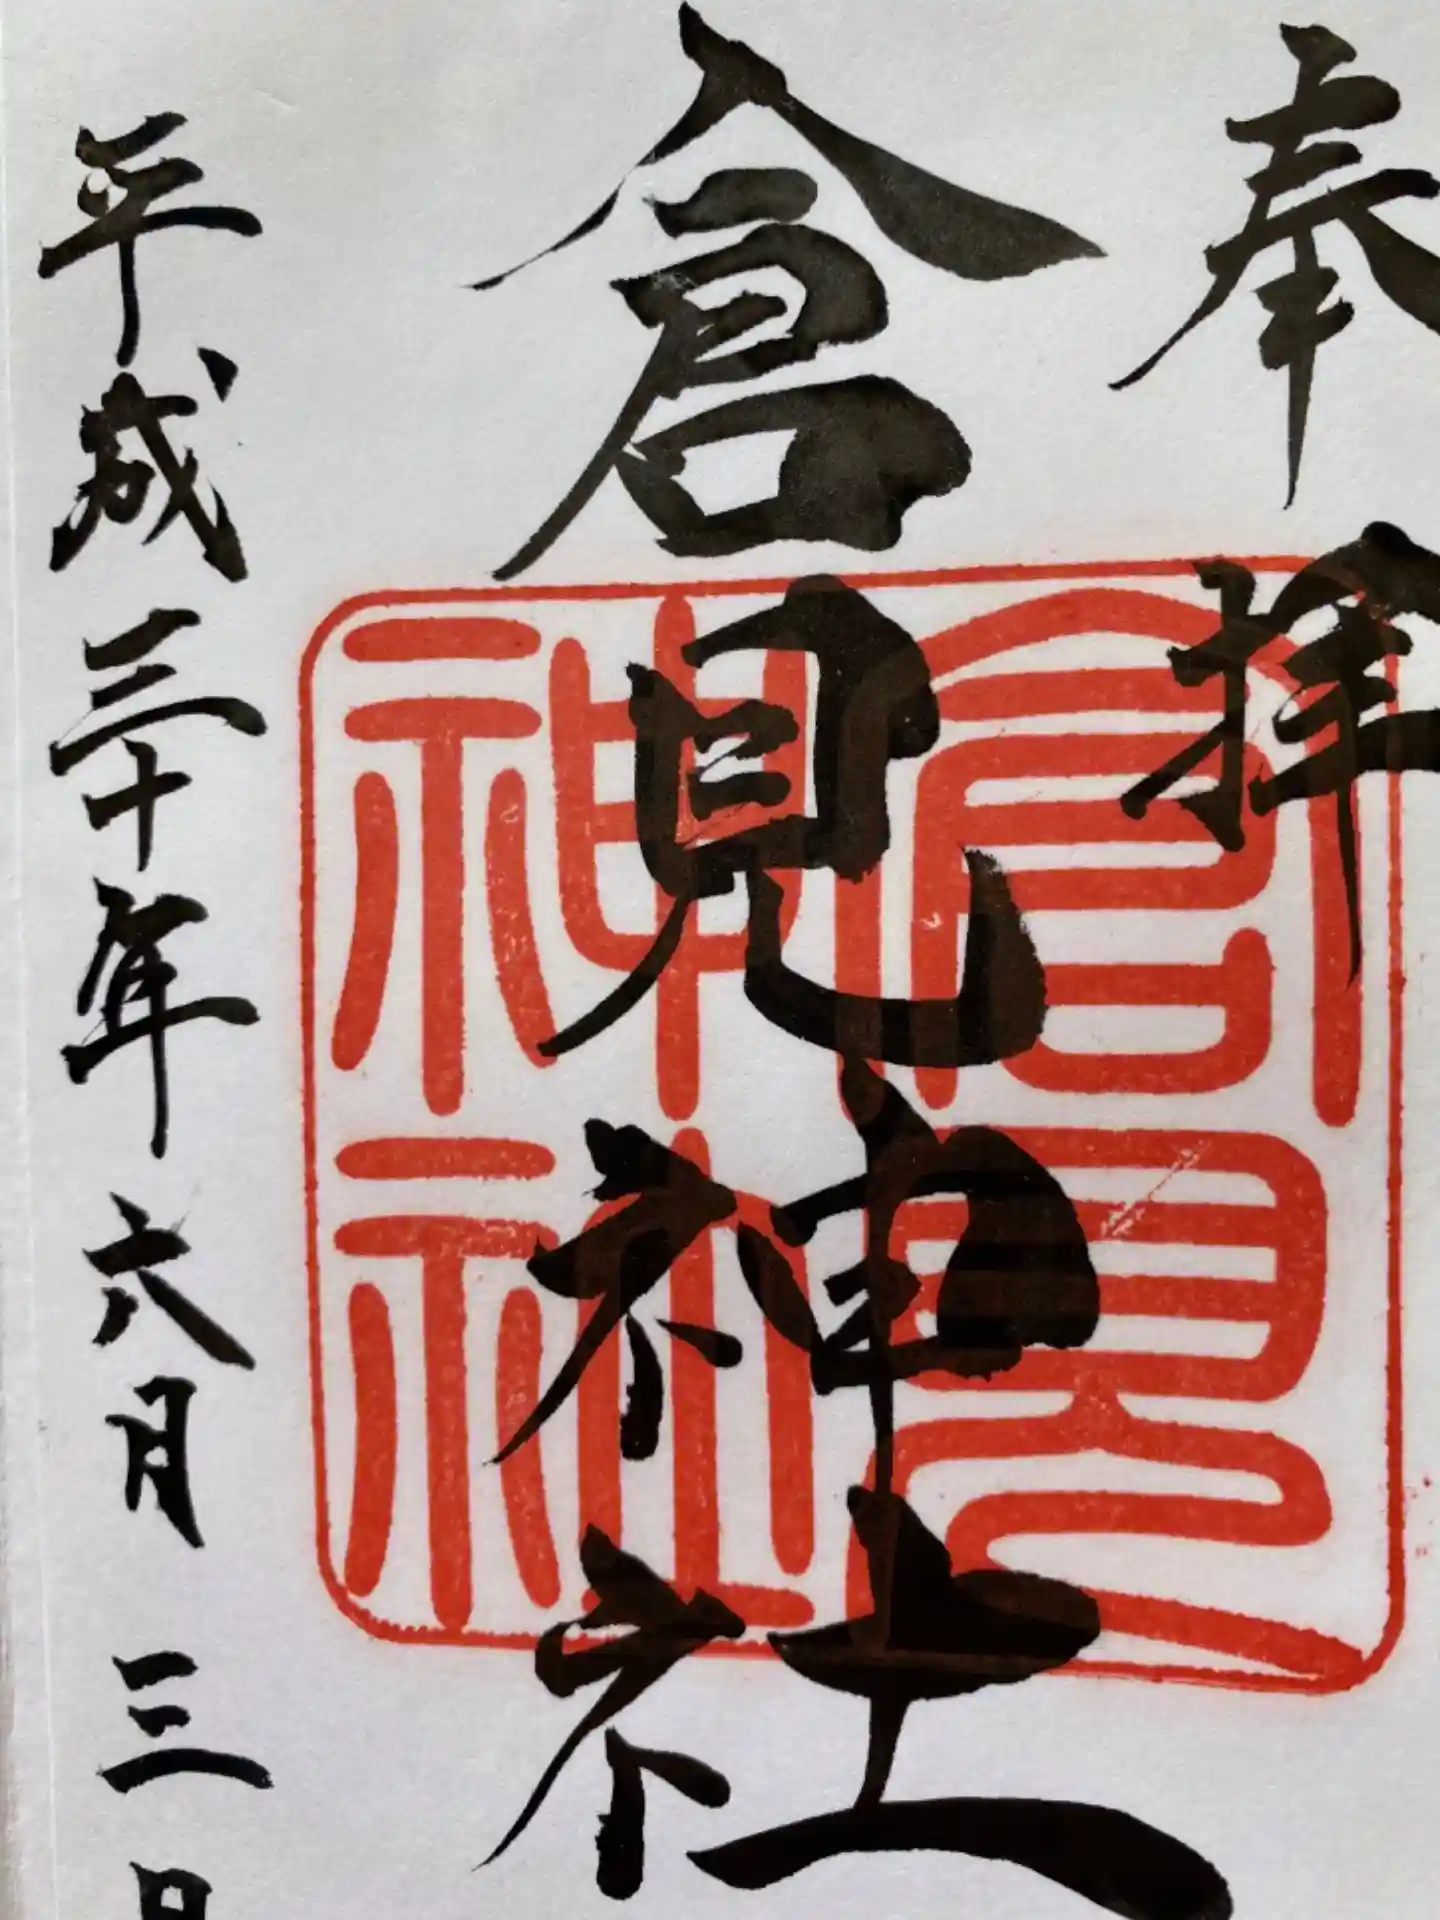 奉拝
倉見神社
倉見
神社
平成三十年六月三日